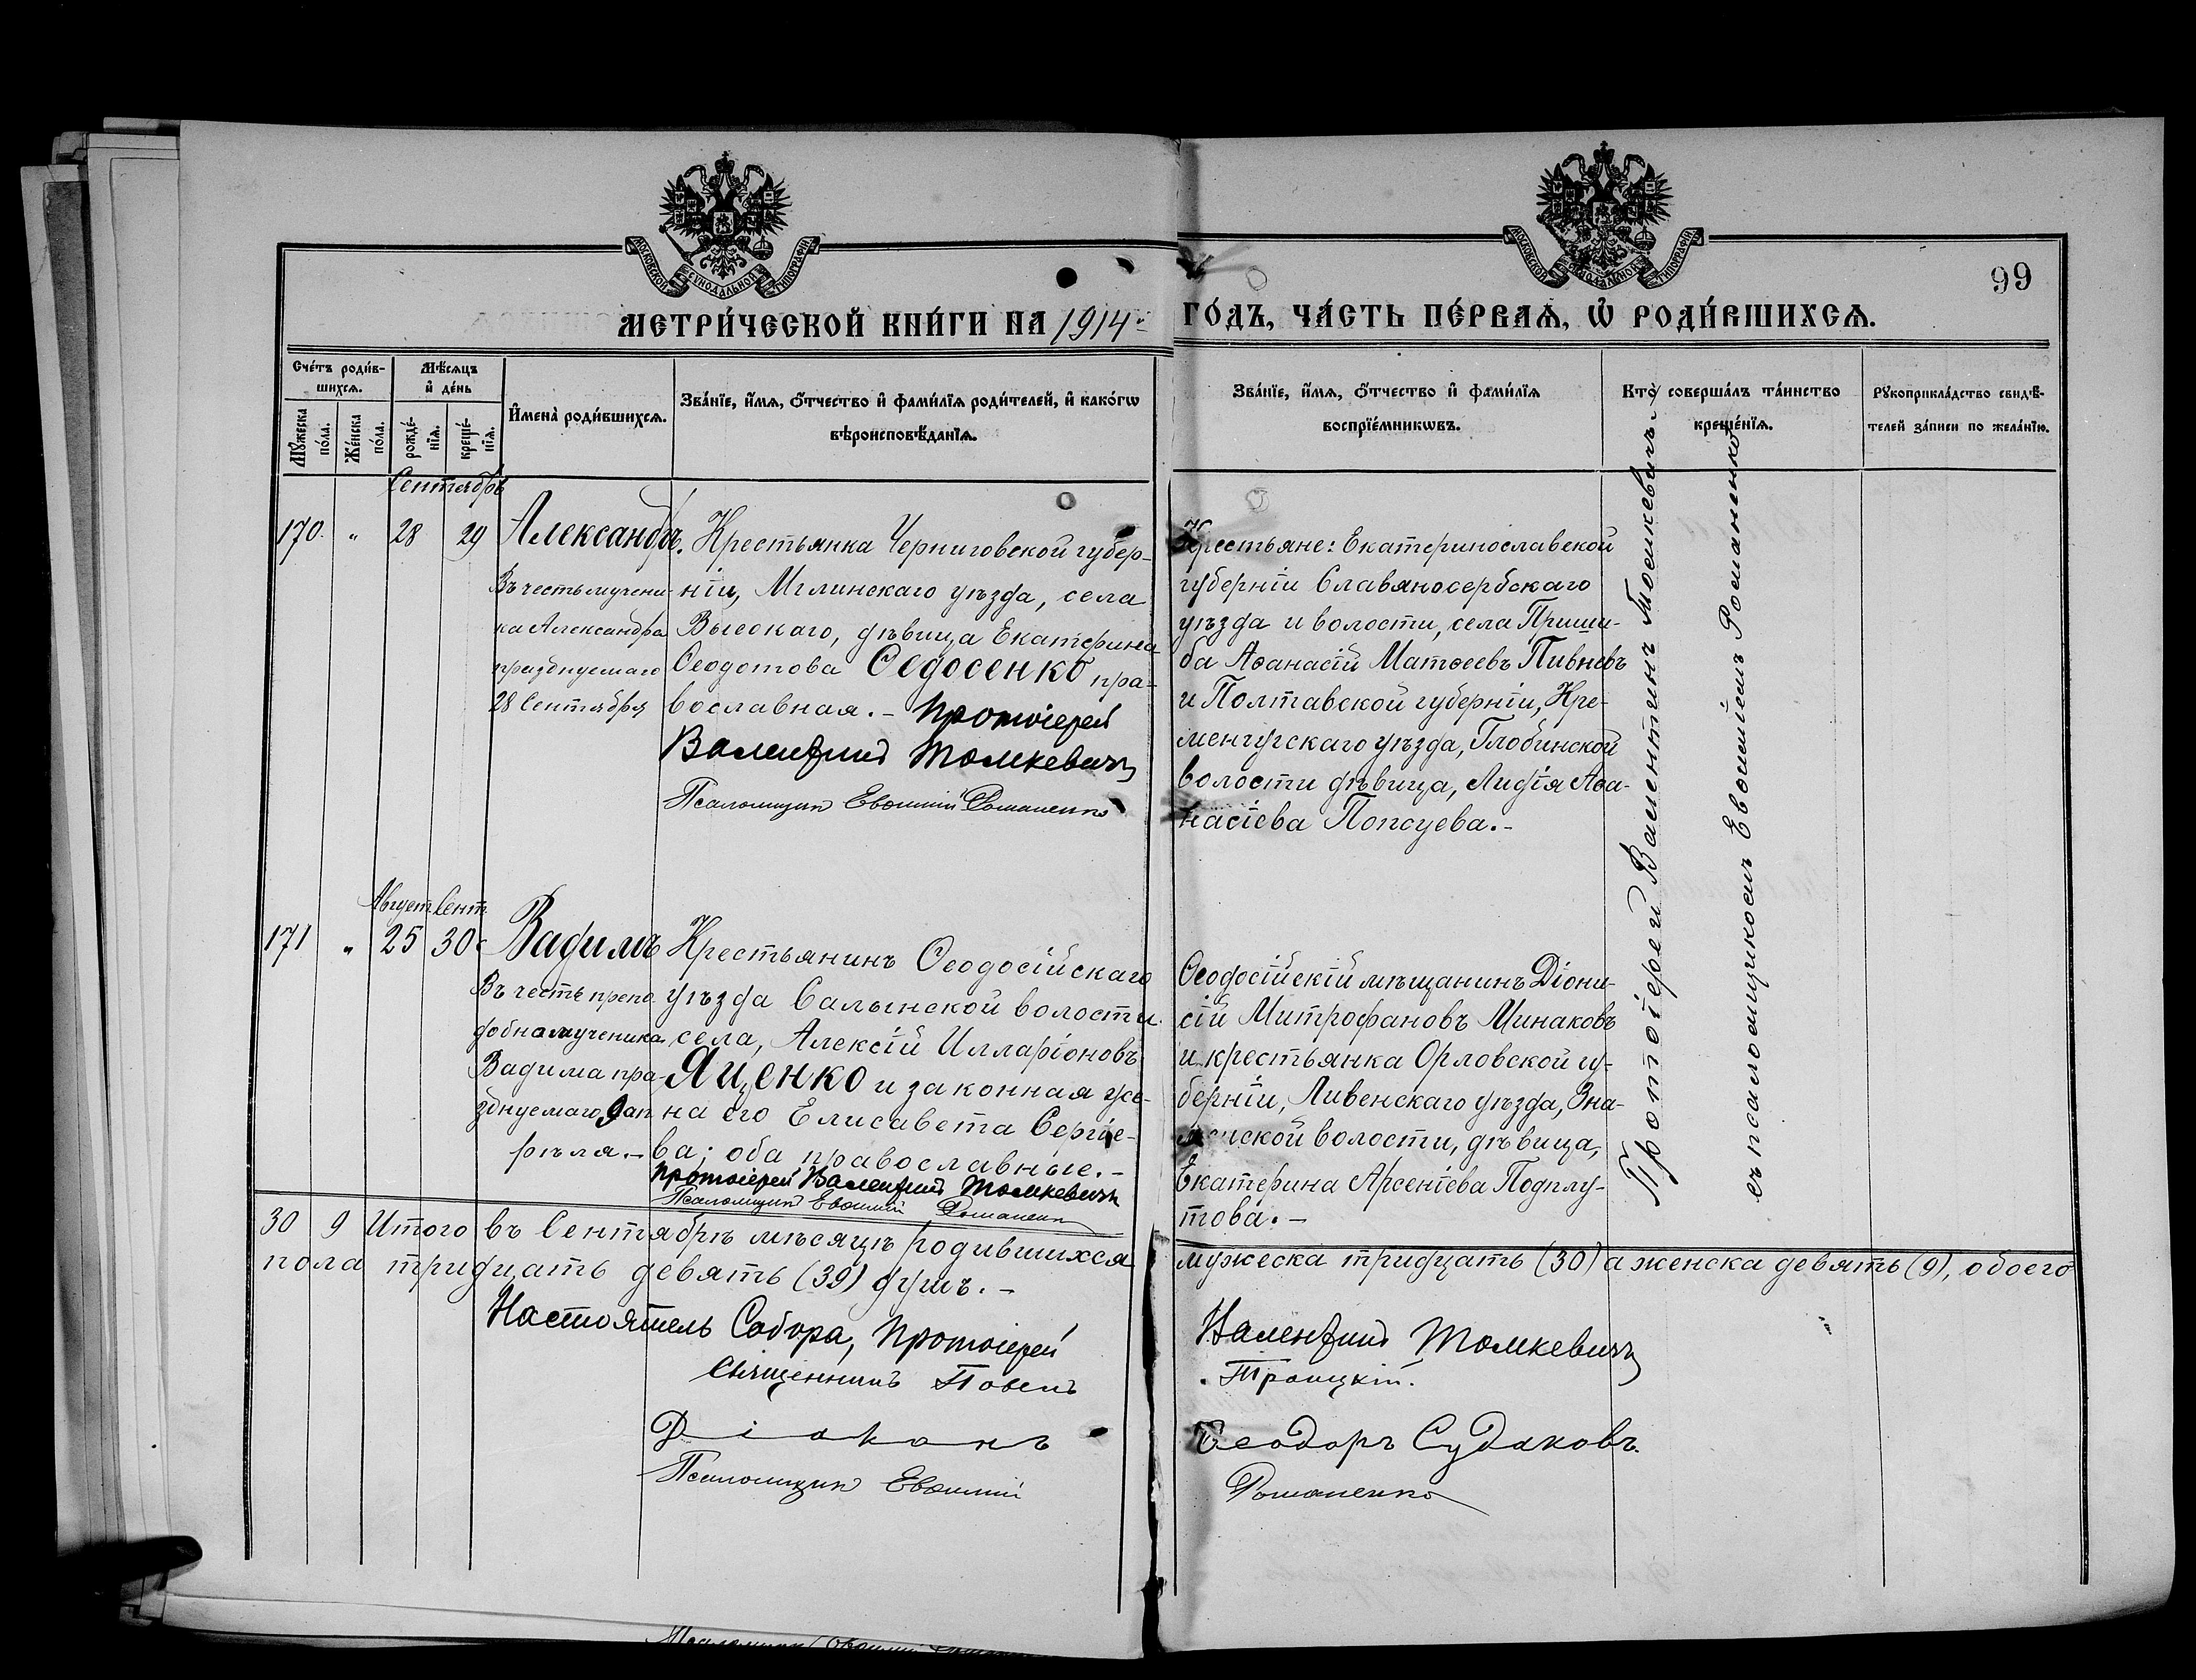 МОСКОВСКОЙ СѴНОДАЛЬНОЙ ТИПОГРАФІИ
МОСКОВСКОЙ СѴНОДАЛЬНОЙ ТИПОГРАФІИ
99
МЕТРИ́ЧЕСКОЙ КНИ́ГИ НА 1914й ГО́ДЪ, ЧА́СТЬ ПЕ́РВАѦ, Ѡ҆ РОДИ́ВШИХСѦ.
Сче́тъ роди́в-
шихсѧ.
Мѣ́сѧцъ
и҆ де́нь
Мꙋ́жеска
по́ла.
Же́нска
по́ла.
рожде́-
нїѧ.
креще́-
нїѧ.
И҆мена̀ роди́вшихсѧ.
Зва́нїе, и҆́мѧ, ѻ҆́тчество и҆ фами́лїѧ роди́телей, и҆ како́гѡ
вѣроисповѣ́данїѧ.
Зва́нїе, и҆́мѧ, ѻ҆́тчество и҆ фами́лїѧ
воспрїе́мникѡвъ.
Кто̀ соверша́лъ та́инство
креще́нїѧ.
Рꙋкоприкла́дство свидѣ́-
телей за́писи по жела́нїю.
Сентябрь
170. " 28 29 Александръ.
Въ честь мучени-
ка Александра
празднуемаго
28 Сентября
Крестьянка Черниговской губер-
ніи, Мглинскаго уѣзда, села
Высокаго, дѣвица Екатерина
Ѳеодотова Ѳедосенко пра-
вославная. - Протоіерей
Валентинъ Томкевичъ
Псаломщикъ Евѳимій Романенко
Крестьяне: Екатеринославской
губерніи Славяносербскаго
уѣзда и волости, села Приши-
ба Аѳанасій Матѳеевъ Пивневъ
и Полтавской губерніи, Кре-
менчугскаго уѣзда, Глобинской
волости дѣвица, Лидія Аѳа-
насіева Попсуева. -
Протоіерей Валентинъ Томкевичъ
съ псаломщикомъ Евѳиміемъ Романенко
Август. Сент.
171 " 25 30 Вадимъ
Въ честь препо-
добномученика
Вадима пра-
зднуемаго 9 ап-
рѣля. -
Крестьянинъ Ѳеодосійскаго
уѣзда Салынской волости
села, Алексій Илларіоновъ
Яценко и законная же-
на его Елисавета Сергіе-
ва; оба православные. -
Протоіерей Валентинъ Томкевичъ
Псаломщикъ Евѳимій Романенко
Ѳеодосійскій мѣщанинъ Діони-
сій Митрофановъ Минаковъ
и крестьянка Орловской гу-
берніи, Ливенскаго уѣзда, Зна-
менской волости, дѣвица,
Екатерина Арсеніева Подплу-
това. -
30 9 Итого въ Сентябрѣ мѣсяцѣ родившихся мужеска тридцать (30) а женска девять (9), обоего
пола тридцать девять (39) душъ. -
Настоятель Собора, Протоіерей Валентинъ Томкевичъ
Священникъ Павелъ Троицкій.
Діаконъ Ѳеодоръ Судаковъ.
Псаломщикъ Евѳимій Романенко